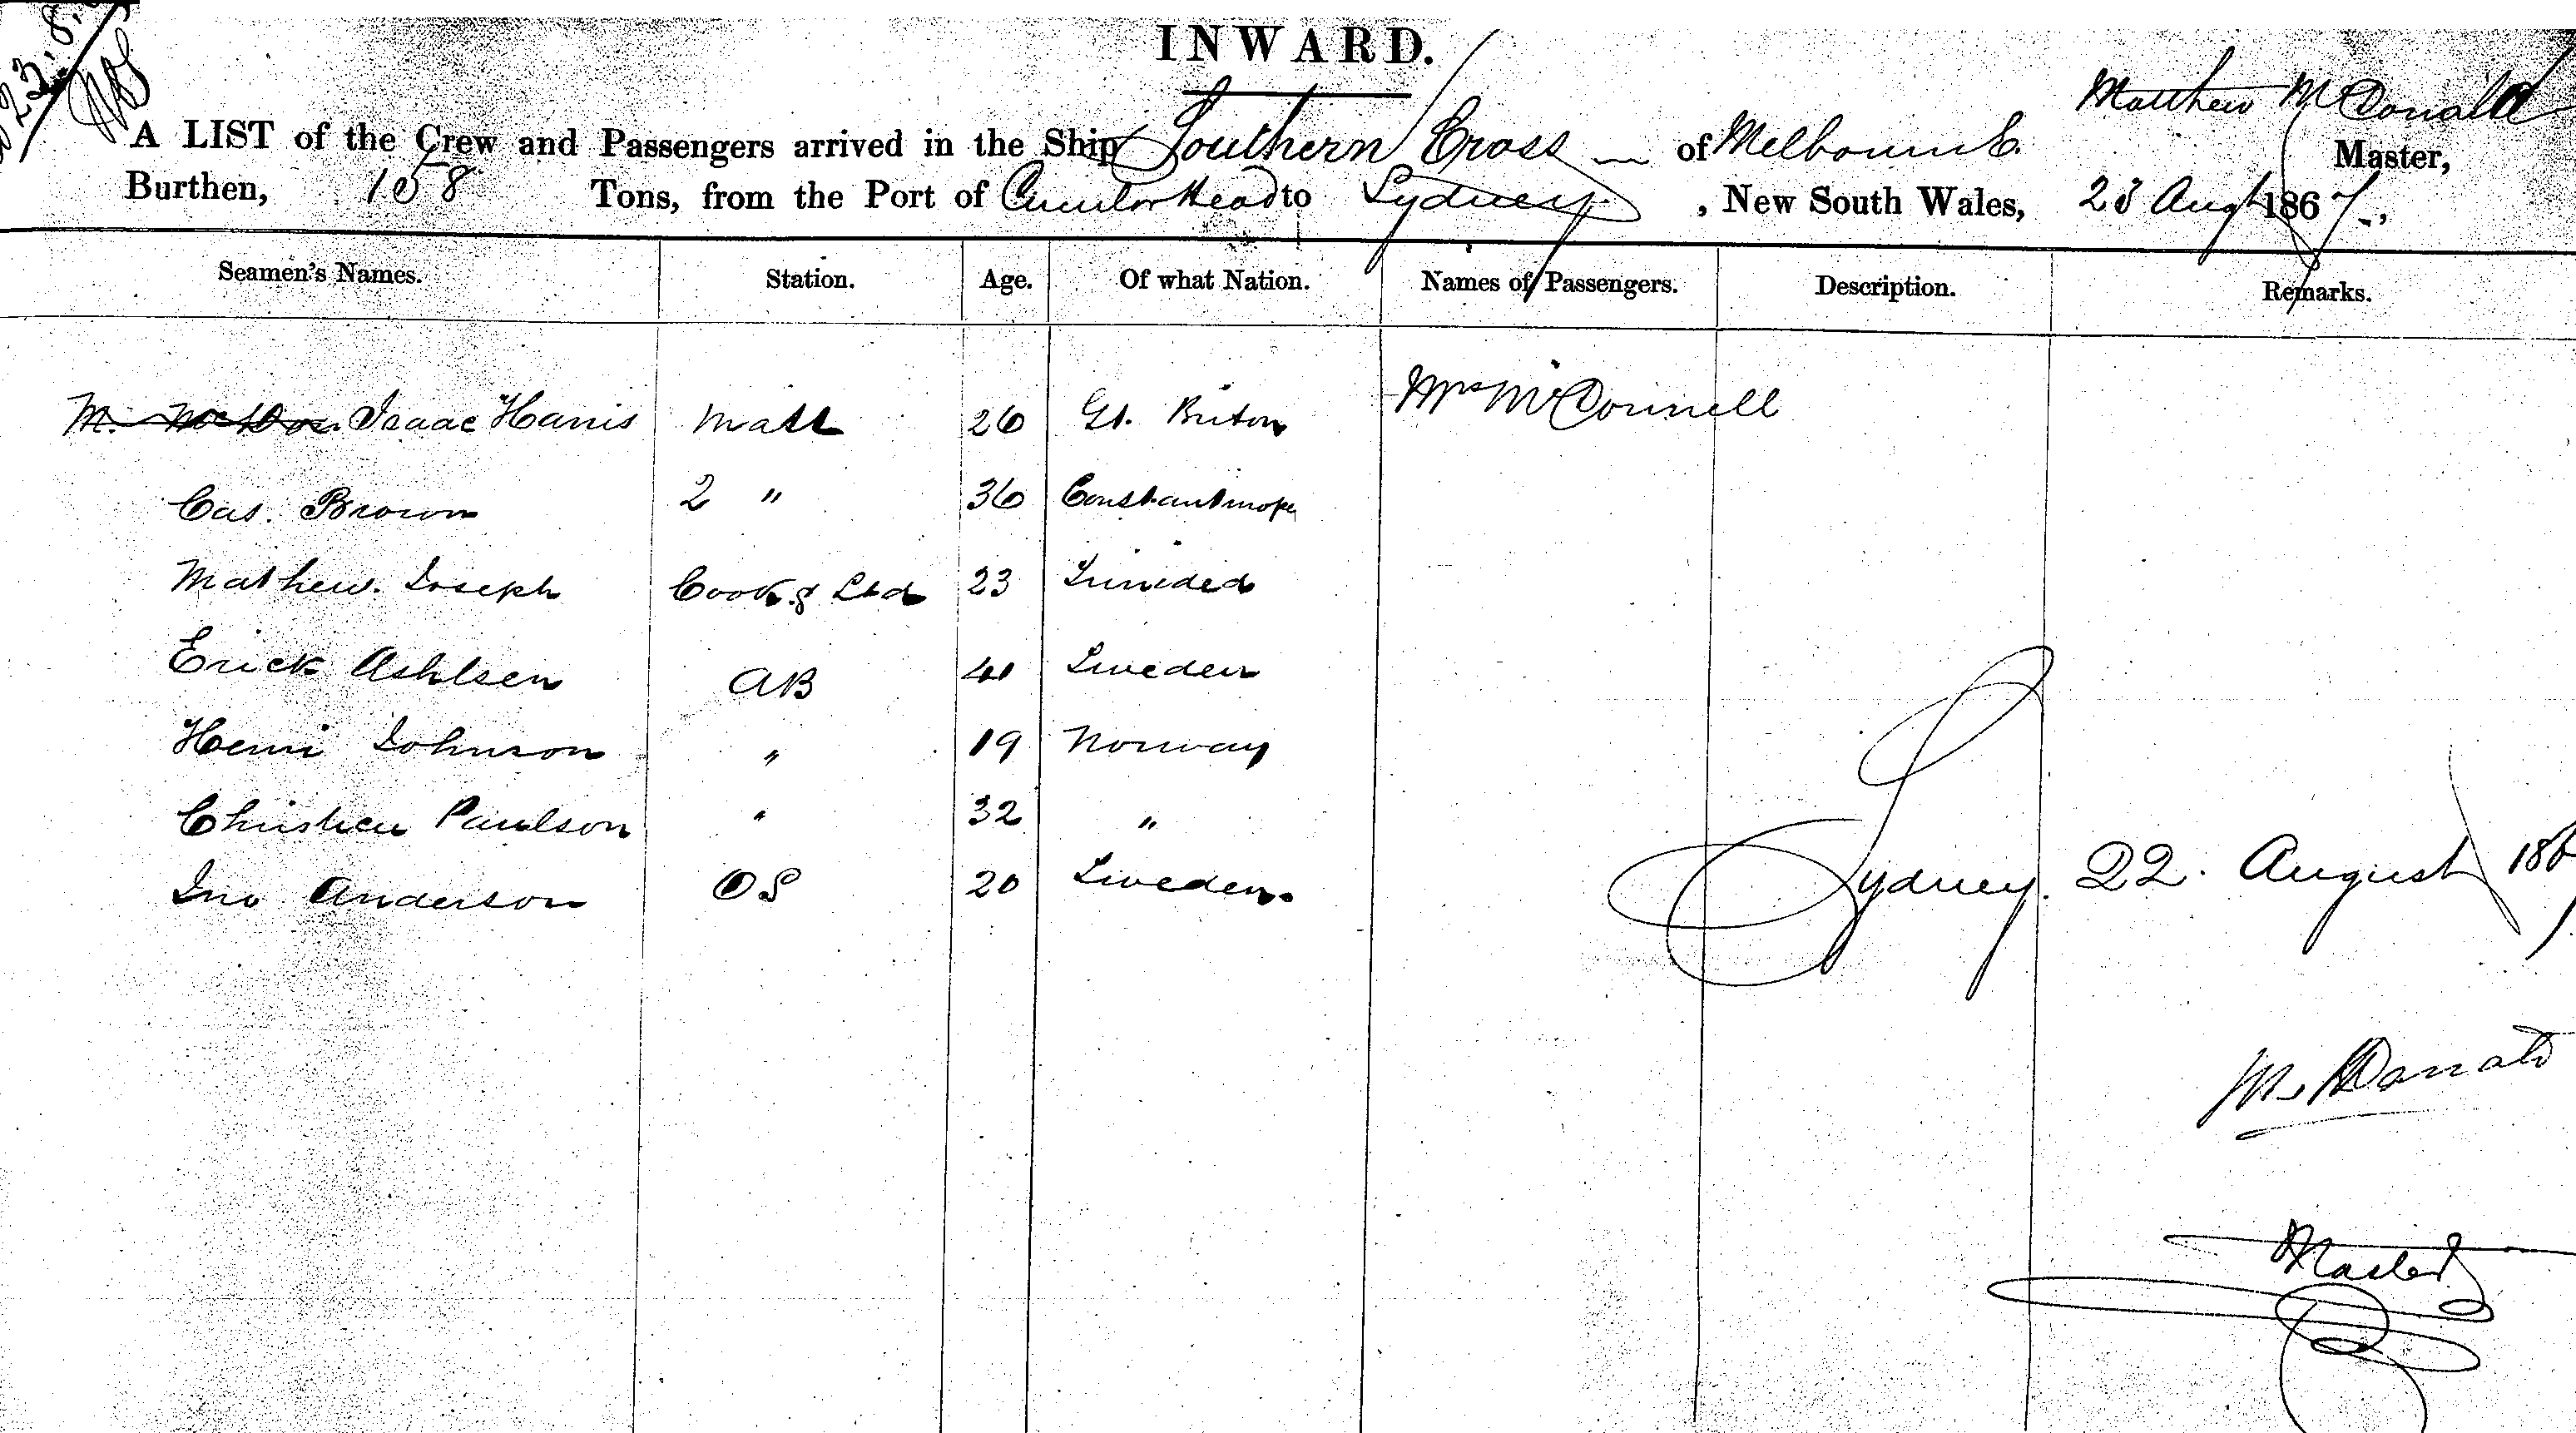 INWARD.
Matthew McDonald
A LIST of the Crew and Passengers arrived in the Ship Southern Cross — of Melbourne. Master,
Burthen, 158 Tons, from the Port of Circular Head to Sydney , New South Wales, 23 Augt 1867.,
Seamen's Names. Station. Age. Of what Nation. Names of Passengers. Description. Remarks.
Isaac Harris Mate 26 Gt. Briton Mrs McConnell
Cas. Brown 2 " 36 Constantinope
Mathew. Joseph Cook & Std 23 Trinided
Erick Ashlsen AB 41 Sweden
Henri Johnson " 19 Norway
Christien Paulson " 32 "
Jno Anderson OS 20 Sweden.
Sydney. 22. August 186
McDonald
Master